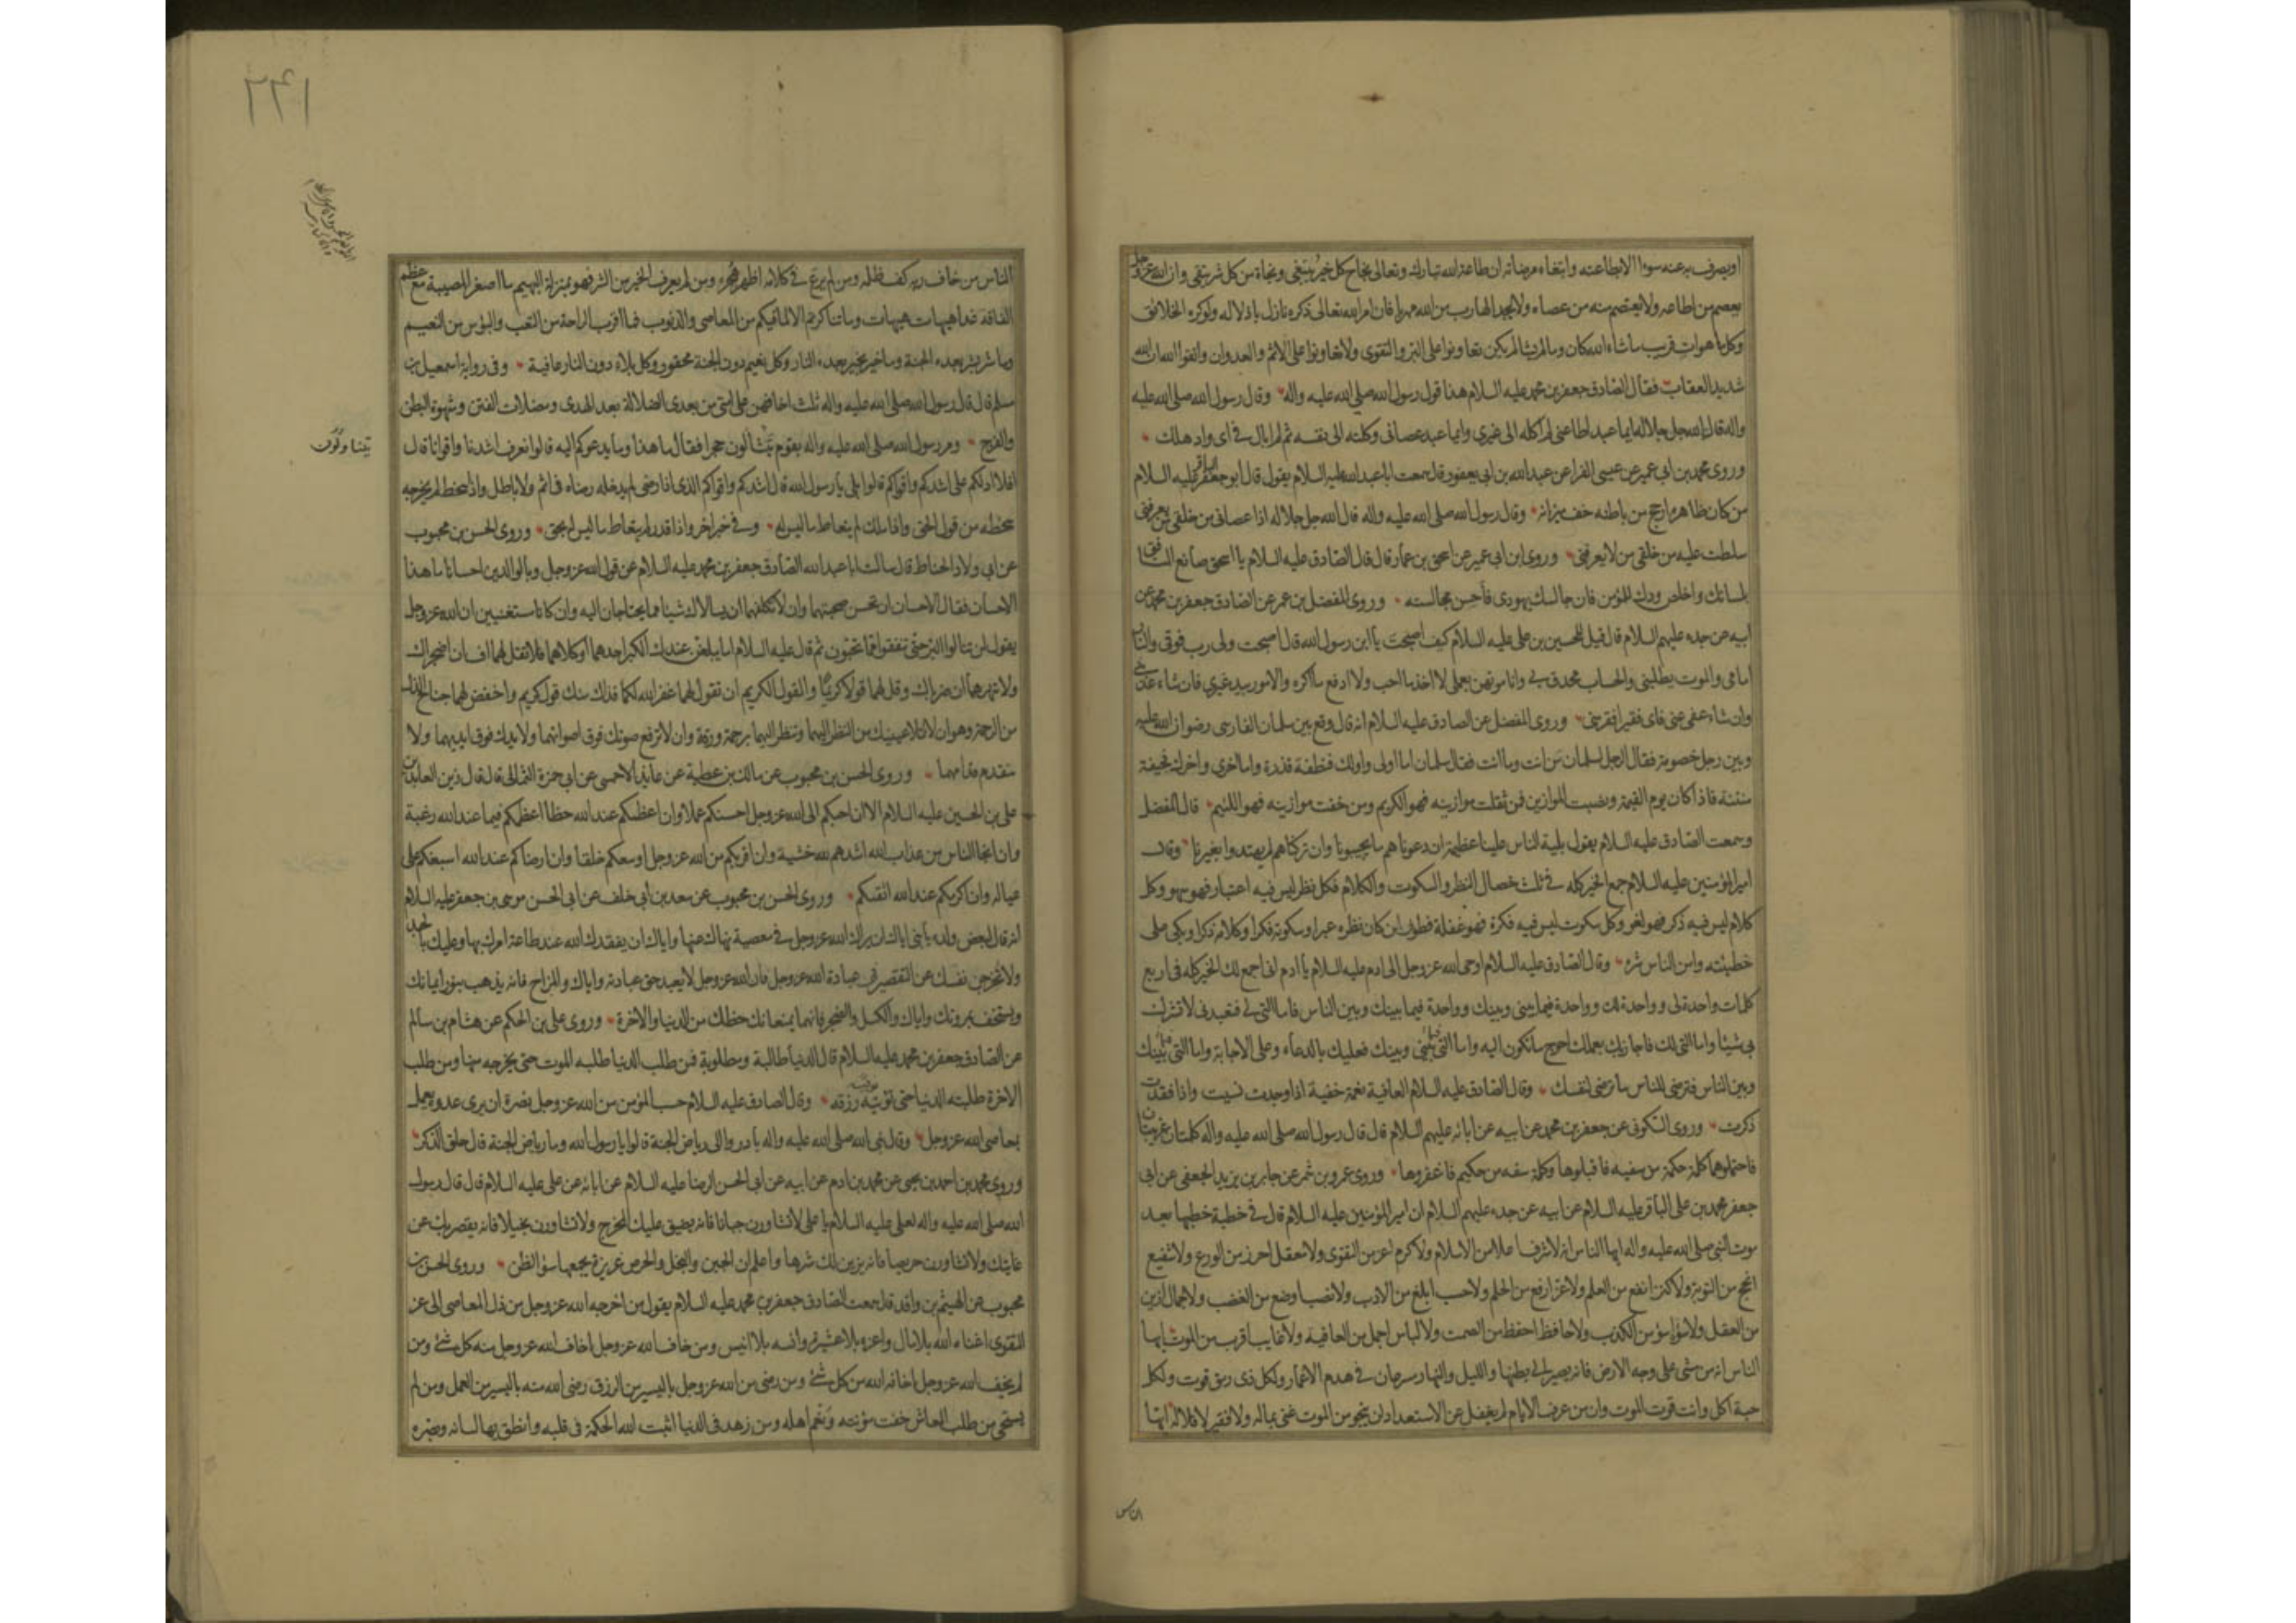 او يصرف به عنه سوءا الا بطاعته وابتغاء مرضاته ان طاعة الله تبارك وتعالى نجاح كل خير يبتغى ونجاة من كل شر يتقى وان الله عز وجل
يعصم من اطاعه ولا يعتصم منه من عصاه ولا يجد الهارب من الله مهربا فان امر الله تعالى ذكره نازل باذلاله ولو كره الخلائق
وكل ما هو ات قريب ما شاء الله كان وما لم يشا لم يكن تعاونوا على البر والتقوى ولا تعاونوا على الاثم والعدوان واتقوا الله ان الله
شديد العقاب فقال الصادق جعفر بن محمد عليه السلام هذا قول رسول الله صلى الله عليه واله وقال رسول الله صلى الله عليه
واله قال الله جل جلاله ايما عبد اطاعنى لم اكله الى غيرى وايما عبد عصانى وكلته الى نفسه ثم لم ابال فى اى واد هلك
وروى محمد بن ابى عمير عن عيسى الفرا عن عبد الله بن ابى يعفور قال سمعت ابا عبد الله عليه السلام يقول قال ابو جعفر الباقر عليه السلام
من كان ظاهره ارجح من باطنه خف ميزانه وقال رسول الله صلى الله عليه واله قال الله جل جلاله اذا عصانى من خلقى من يعرفنى
سلطت عليه من خلقى من لا يعرفنى وروى ابن ابى عمير عن اسحق بن عمار قال قال الصادق عليه السلام يا اسحق صانع المنافق
بلسانك واخلص ودك للمؤمن فان جالسك يهودى فأحسن مجالسته وروى المفضل بن عمر عن الصادق جعفر بن محمد عن
ابيه عن جده عليهم السلام قال قيل للحسين بن على عليه السلام كيف اصبحت يا ابن رسول الله قال اصبحت ولى رب فوقى والنار
امامى والموت يطلبنى والحساب محدق بى وانا مرتهن بعملى لا اخذ ما احب ولا ادفع ما اكره والامور بيد غيرى فان شاء عذبنى
وان شاء عفى عنى فاى فقير افقر منى وروى المفضل عن الصادق عليه السلام انه قال وقع بين سلمان الفارسى رضوان الله عليه
وبين رجل خصومة فقال الرجل لسلمان من انت وما انت فقال سلمان اما اولى واولك فنطفة قذرة واما اخرى واخرك فجيفة
منتنة فاذا كان يوم القيمة ونصبت الموازين فمن ثقلت موازينه فهو الكريم ومن خفت موازينه فهو اللئيم قال المفضل
وسمعت الصادق عليه السلام يقول بلية الناس علينا عظيمة ان دعوناهم لم يجيبونا وان تركناهم لم يهتدوا بغيرنا وقال
امير المؤمنين عليه السلام جمع الخير كله فى ثلث خصال النظر والسكوت والكلام فكل نظر ليس فيه اعتبار فهو سهو وكل
كلام ليس فيه ذكر فهو لغو وكل سكوت ليس فيه فكرة فهو غفلة فطوبى لمن كان نظره عبرا وسكوته فكرا وكلامه ذكرا وبكى على
خطيئته وامن الناس شره وقال الصادق عليه السلام اوحى الله عز وجل الى ادم عليه السلام يا ادم انى اجمع لك الخير كله فى اربع
كلمات واحدة لى وواحدة لك وواحدة فيما بينى وبينك وواحدة فيما بينك وبين الناس فاما التى لى فتعبدنى لا تشرك
بى شيئا واما التى لك فاجازيك بعملك احوج ما تكون اليه واما التى بينى وبينك فعليك بالدعاء وعلى الاجابة واما التى بينك
وبين الناس فترضى للناس ما ترضى لنفسك وقال الصادق عليه السلام العافية نعمة خفية اذا وجدت نسيت واذا فقدت
ذكرت وروى السكونى عن جعفر بن محمد عن ابيه عن ابائه عليهم السلام قال قال رسول الله صلى الله عليه واله كلمتان غريبتان
فاحتملوهما كلمة حكمة من سفيه فاقبلوها وكلمة سفه من حكيم فاغفروها وروى عمرو بن شمر عن جابر بن يزيد الجعفى عن ابى
جعفر محمد بن على الباقر عليه السلام عن ابيه عن جده عليهم السلام ان امير المؤمنين عليه السلام قال فى خطبة خطبها بعد
موت النبى صلى الله عليه واله ايها الناس انه لا شرف اعلا من الاسلام ولا كرم اعز من التقوى ولا معقل احرز من الورع ولا شفيع
انجح من التوبة ولا كنز انفع من العلم ولا عز ارفع من الحلم ولا حسب ابلغ من الادب ولا نصب اوضع من الغضب ولا جمال ازين
من العقل ولا سوأة اسوأ من الكذب ولا حافظ احفظ من الصمت ولا لباس اجمل من العافية ولا غايب اقرب من الموت ايها
الناس انه من مشى على وجه الارض فانه يصير الى بطنها والليل والنهار مسرعان فى هدم الاعمار ولكل ذى رمق قوت ولكل
حبة اكل وانت قوت الموت وان من عرف الايام لم يغفل عن الاستعداد لن ينجو من الموت غنى بماله ولا فقير لاقلاله ايها
الناس
٢٢١
الناس من خاف ربه كف ظلمه ومن لم يرع فى كلامه اظهر هجره ومن لم يعرف الخير من الشر فهو بمنزلة البهيم ما اصغر المصيبة مع عظم
الفاقة غدا هيهات هيهات وما تناكرتم الا لما فيكم من المعاصى والذنوب فما اقرب الراحة من التعب والبؤس من النعيم
وما شر بشر بعده الجنة وما خير بخير بعده النار وكل نعيم دون الجنة محقور وكل بلاء دون النار عافية وفى رواية اسمعيل بن
مسلم قال قال رسول الله صلى الله عليه واله ثلث اخافهن على امتى من بعدى الضلالة بعد الهدى ومضلات الفتن وشهوة البطن
والفرج ومر رسول الله صلى الله عليه واله بقوم يتشالون حجرا فقال ما هذا وما يدعوكم اليه قالوا نعرف اشدنا واقوانا قال
افلا ادلكم على اشدكم واقواكم قالوا بلى يا رسول الله قال اشدكم واقواكم الذى اذا رضى لم يدخله رضاه فى اثم ولا باطل واذا سخط لم يخرجه
سخطه من قول الحق واذا ملك لم يتعاط ما ليس له وفى خبر اخر واذا قدر لم يتعاط ما ليس له بحق وروى الحسن بن محبوب
عن ابى ولاد الحناط قال سالت ابا عبد الله الصادق جعفر بن محمد عليه السلام عن قول الله عز وجل وبالوالدين احسانا ما هذا
الاحسان فقال الاحسان ان تحسن صحبتهما وان لا تكلفهما ان يسالاك شيئا مما يحتاجان اليه وان كانا مستغنيين ان الله عز وجل
يقول لن تنالوا البر حتى تنفقوا مما تحبون ثم قال عليه السلام اما يبلغن عندك الكبر احدهما او كلاهما فلا تقل لهما اف ان اضجراك
ولا تنهرهما ان ضرباك وقل لهما قولا كريما والقول الكريم ان تقول لهما غفر الله لكما فذاك منك قول كريم واخفض لهما جناح الذل
من الرحمة وهو ان لا تملا عينيك من النظر اليهما وتنظر اليهما برحمة ورقة وان لا ترفع صوتك فوق اصواتهما ولا يدك فوق ايديهما ولا
تتقدم قدامهما وروى الحسن بن محبوب عن مالك بن عطية عن عايذ الاحمسى عن ابى حمزة الثمالى قال قال زين العابدين
على بن الحسين عليه السلام الا ان احبكم الى الله عز وجل احسنكم عملا وان اعظمكم عند الله حظا اعظمكم فيما عند الله رغبة
وان انجا الناس من عذاب الله اشدهم لله خشية وان اقربكم من الله عز وجل اوسعكم خلقا وان ارضاكم عند الله اسبغكم على
عياله وان اكرمكم عند الله اتقيكم وروى الحسن بن محبوب عن سعد بن ابى خلف عن ابى الحسن موسى بن جعفر عليه السلام
انه قال لبعض ولده يا بنى اياك ان يراك الله عز وجل فى معصية نهاك عنها واياك ان يفقدك الله عند طاعة امرك بها وعليك بالجد
ولا تخرجن نفسك عن التقصير فى عبادة الله عز وجل فان الله عز وجل لا يعبد حق عبادته واياك والمزاح فانه يذهب بنور ايمانك
ويستخف بمروتك واياك والكسل والضجر فانهما يمنعانك حظك من الدنيا والاخرة وروى على بن الحكم عن هشام بن سالم
عن الصادق جعفر بن محمد عليه السلام قال الدنيا طالبة ومطلوبة فمن طلب الدنيا طلبه الموت حتى يخرجه منها ومن طلب
الاخرة طلبته الدنيا حتى توفيه رزقه وقال الصادق عليه السلام حسب المؤمن من الله عز وجل نصرة ان يرى عدوه يعمل
بمعاصى الله عز وجل وقال نبى الله صلى الله عليه واله بادروا الى رياض الجنة قالوا يا رسول الله وما رياض الجنة قال حلق الذكر
وروى محمد بن احمد بن يحيى عن محمد بن ادم عن ابيه عن ابى الحسن الرضا عليه السلام عن ابائه عن على عليه السلام قال قال رسول
الله صلى الله عليه واله لعلى عليه السلام يا على لا تشاورن جبانا فانه يضيق عليك المخرج ولا تشاورن بخيلا فانه يقصر بك عن
غايتك ولا تشاورن حريصا فانه يزين لك شرها واعلم ان الجبن والبخل والحرص غريزة يجمعها سؤ الظن وروى الحسن بن
محبوب عن الهيثم بن واقد قال سمعت الصادق جعفر بن محمد عليه السلام يقول من اخرجه الله عز وجل من ذل المعاصى الى عز
التقوى اغناه الله بلا مال واعزه بلا عشيرة وانسه بلا انيس ومن خاف الله عز وجل اخاف الله عز وجل منه كل شئ ومن
لم يخف الله عز وجل اخافه الله من كل شئ ومن رضى من الله عز وجل باليسير من الرزق رضى الله منه باليسير من العمل ومن لم
يستحى من طلب المعاش خفت مؤنته ونعم اهله ومن زهد فى الدنيا اثبت الله الحكمة فى قلبه وانطق بها لسانه وبصره